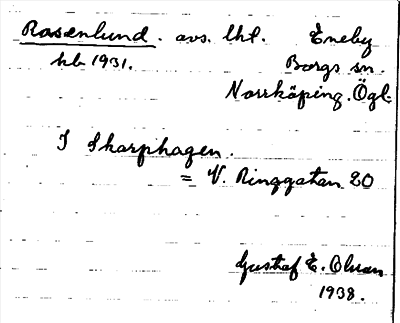 Rosenlund. avs. lht. Eneby
hb 1931. Borgs sn.
Norrköping. Ögl.
I Skarphagen.
= V. Ringgatan 20
Gustaf E. Olsson
1938.